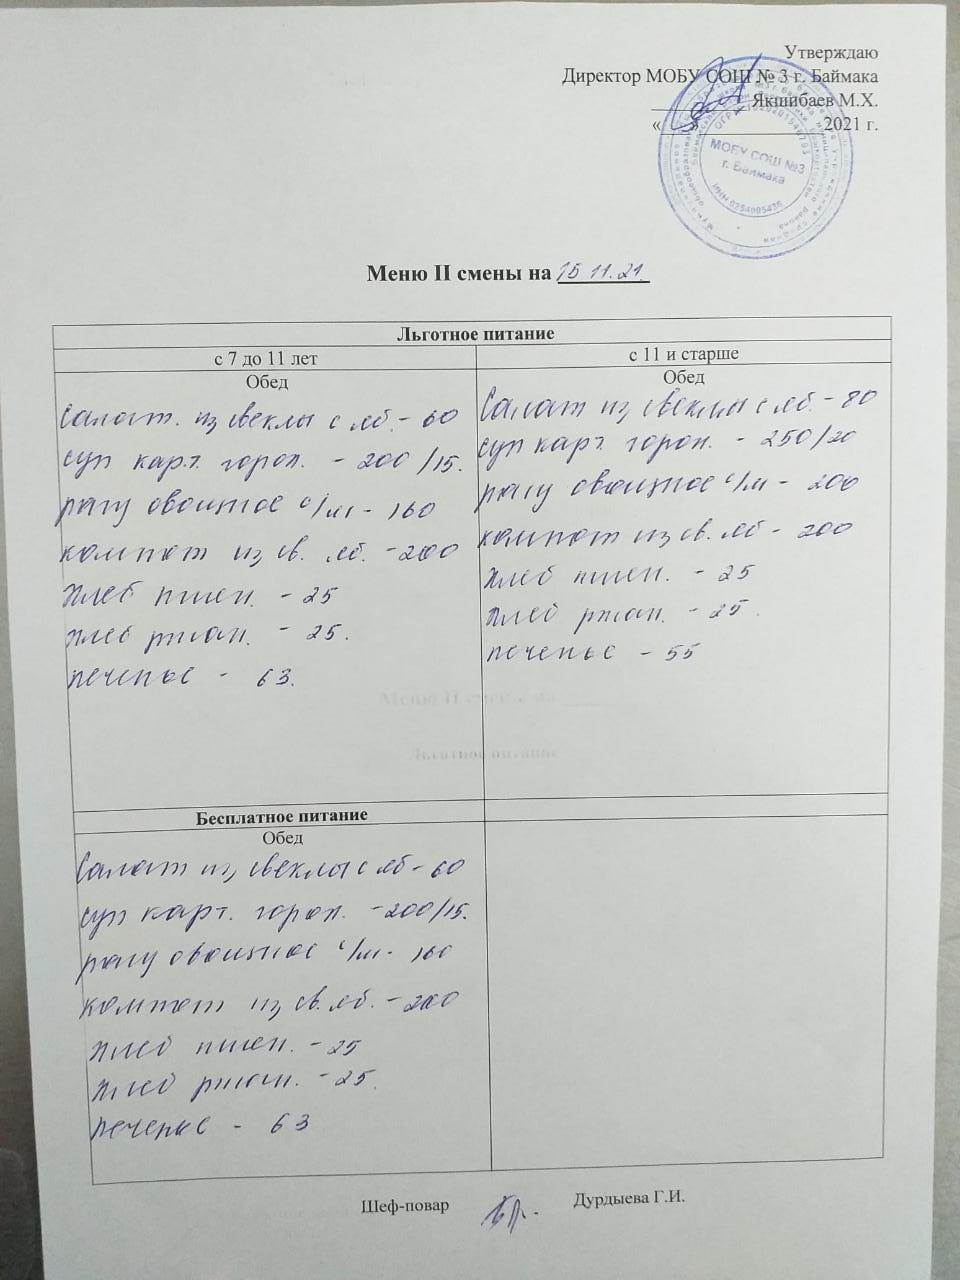 Утверждаю
Директор МОБУ СОШ № 3 г. Баймака
Якшибаев М.Х.
« » 2021 г.
МОБУ СОШ №3
г. Баймака
ИНН 0254005436
Меню II смены на 15.11.21.
Льготное питание
с 7 до 11 лет
Обед
Салат. из свеклы с яб. - 60
суп карт. горох. - 200/15.
рагу овощное с/м - 160
компот из св. яб. - 200
хлеб пшен. - 25
хлеб ржан. - 25.
печенье - 63.
с 11 и старше
Обед
Салат из свеклы с яб. - 80
суп карт. горох. - 250/20
рагу овощное с/м - 200
компот из св. яб - 200
хлеб пшен. - 25
хлеб ржан. - 25.
печенье - 55
Бесплатное питание
Обед
Салат из свеклы с яб - 60
суп карт. горох. - 200/15.
рагу овощное с/м - 160
компот из св. яб. - 200
хлеб пшен. - 25
хлеб ржан. - 25.
печенье - 63
Шеф-повар Дурдыева Г.И.